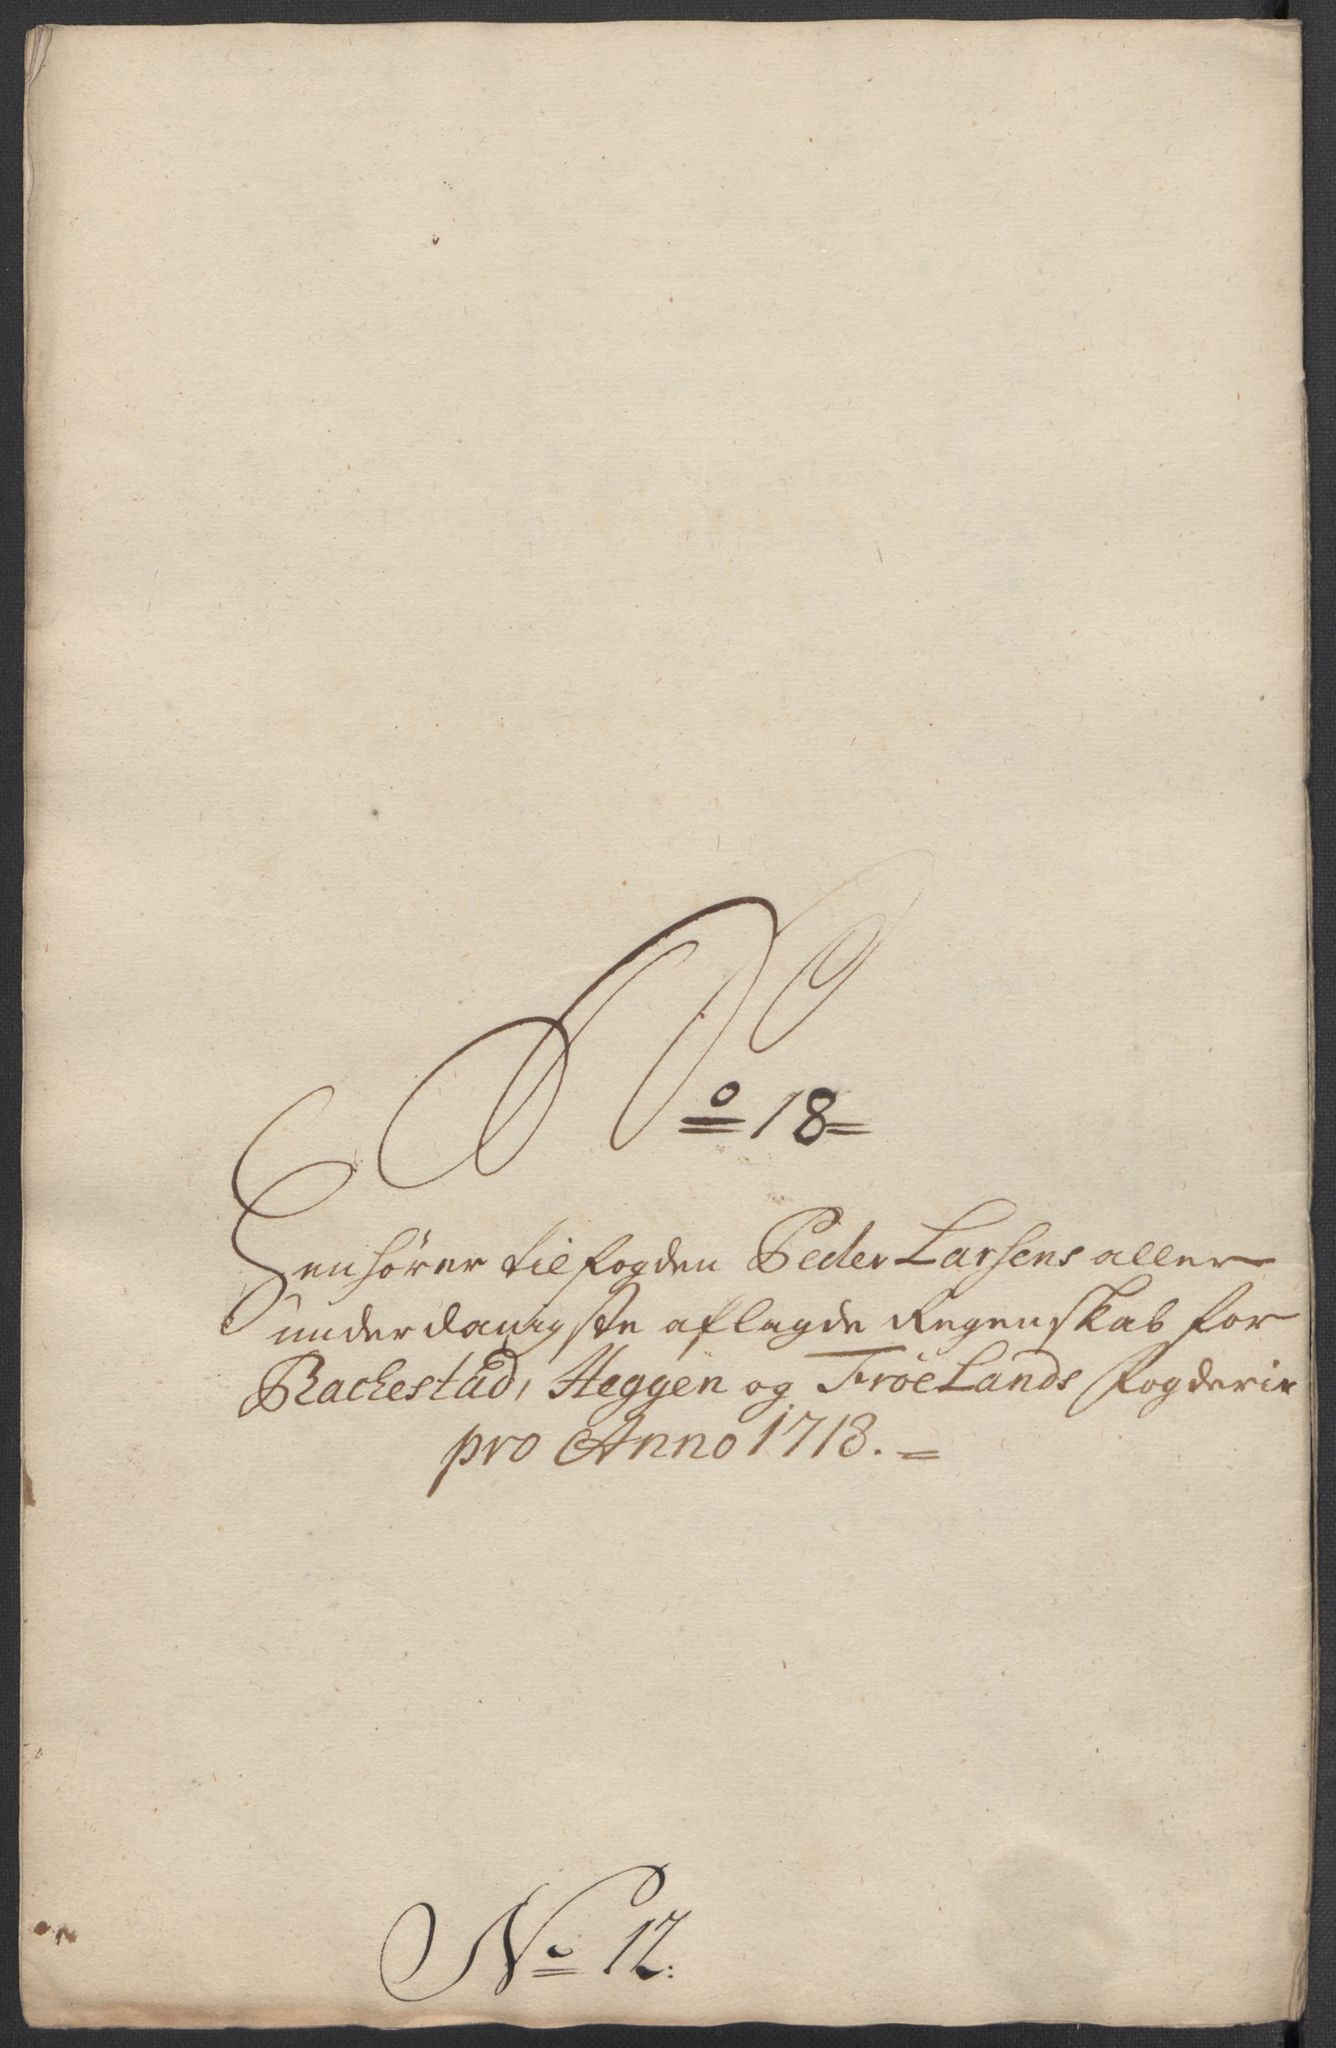 No 18
Henhører til fogden Peder Larsens aller
underdanigste aflagde Regenskab for
Rachestad, Heggen og Frøelands fogderie
pro Anno 1718.
No 12: